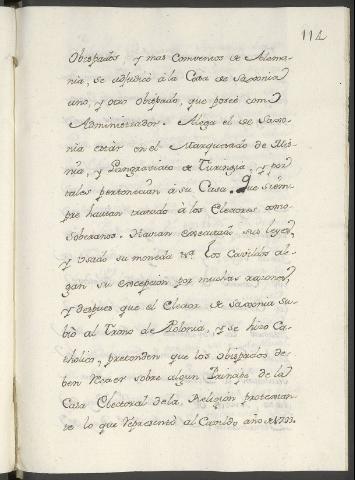 114
Obispados, y mas Conventos de Alema-
nia, se adjudicò à la Casa de Saxonia
uno, y otro obispado, que poseè como
Administrador. Alega el de Saxo-
nia estàr en el Marquesado de Mis-
nia, y Langraviato de Turingia, y por
tales pertenecian à su Casa. Que siem-
pre havian tratado à los Electores como
Soberanos. Havian executado sus leyes,
y usado su moneda &a. Los Cavildos ale-
gan su excepcion por muchas razones,
y despues que el Elector de Saxonia su-
biò al Trono de Polonia, y se hizo Ca-
tholico, pretenden que los obispados de-
ben recaer sobre algun Principe de la
Casa Electoral de la Religion protestan-
te lo que representò al Cavildo año de 1733.